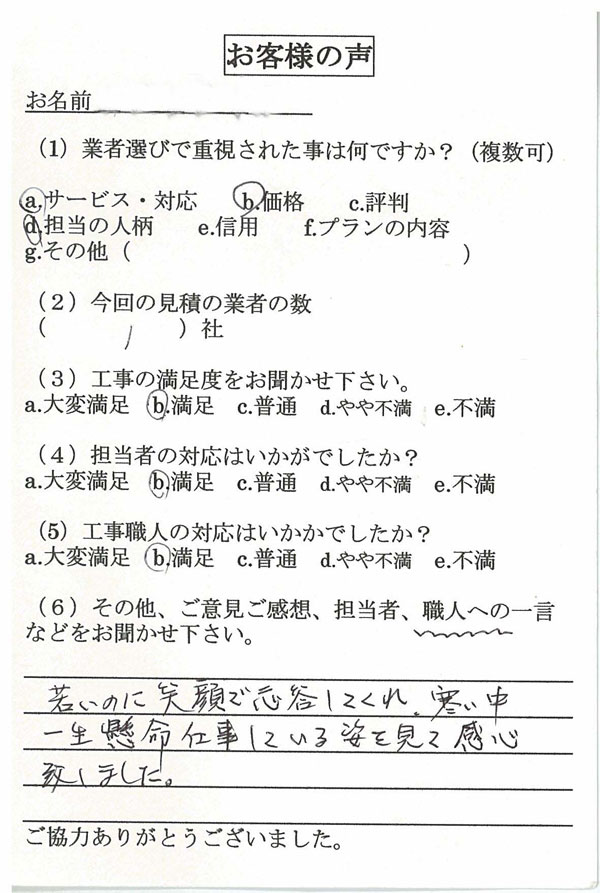 お客様の声
お名前
(1) 業者選びで重視された事は何ですか？（複数可）
a.サービス・対応 b.価格 c.評判
d.担当の人柄 e.信用 f.プランの内容
g.その他（ ）
（２）今回の見積の業者の数
（ 1 ）社
（３）工事の満足度をお聞かせ下さい。
a.大変満足 b.満足 c.普通 d.やや不満 e.不満
（４）担当者の対応はいかがでしたか？
a.大変満足 b.満足 c.普通 d.やや不満 e.不満
（5）工事職人の対応はいかかでしたか？
a.大変満足 b.満足 c.普通 d.やや不満 e.不満
（６）その他、ご意見ご感想、担当者、職人への一言
などをお聞かせ下さい。
若いのに笑顔で応答してくれ、寒い中
一生懸命仕事している姿を見て感心
致しました。
ご協力ありがとうございました。